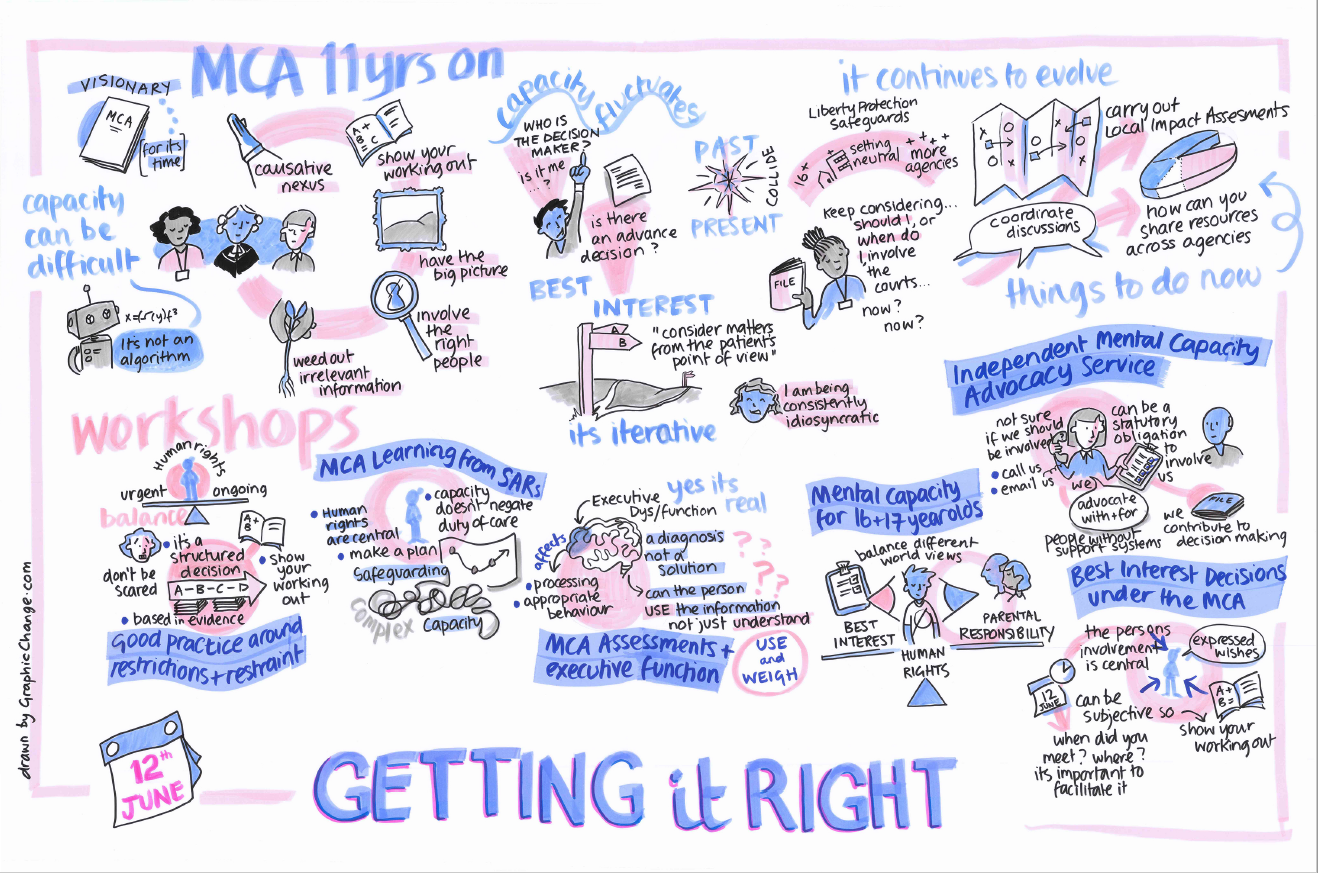 MCA 11yrs on
VISIONARY
MCA
for its
time
causative
nexus
A+
B=
C
show your
working out
capacity
can be
difficult
have the
big picture
involve
the
right
people
weed out
irrelevant
information
It's not an
algorithm
capacity fluctuates
WHO IS
THE DECISION
MAKER?
is it me
...?
is there
an advance
decision?
PAST
COLLIDE
PRESENT
BEST
INTEREST
A
B
"consider matters
from the patients
point of view"
I am being
consistently
idiosyncratic
its iterative
it continues to evolve
Liberty Protection
Safeguards
16+
setting
neutral
+++
more
agencies
keep considering...
should I, or
when do
I involve
the
courts...
now?
now?
FILE
carry out
Local Impact Assesments
coordinate
discussions
how can you
share resources
across agencies
things to do now
workshops
Human rights
urgent
ongoing
balance
A+
B
it's a
structured
decision
don't be
scared
A-B-C-D
show
your
working
out
based in evidence
Good practice around
restrictions + restraint
MCA Learning from SARs
Human
rights
are central
capacity
doesn't negate
duty of care
make a plan
Safeguarding
complex
Capacity
Executive
Dys/function
yes its
real
affects
processing
appropriate
behaviour
a diagnosis
not a
solution
??
??
can the person
USE the information
not just understand
MCA Assessments +
executive function
USE
and
WEIGH
Mental Capacity
for 16+17 yearolds
balance different
world views
BEST
INTEREST
HUMAN
RIGHTS
PARENTAL
RESPONSIBILITY
Independent Mental Capacity
Advocacy Service
not sure
if we should
be involved?
call us
email us
can be a
statutory
obligation
to
involve
us
we
advocate
with+for
people without
support systems
FILE
we
contribute to
decision making
Best Interest Decisions
under the MCA
the persons
involvement
is central
expressed
wishes
12
JUNE
can be
subjective so
A+
B=
show your
working out
when did you
meet? where?
its important to
facilitate it
drawn by GraphicChange.com
12th
JUNE
GETTING it RIGHT